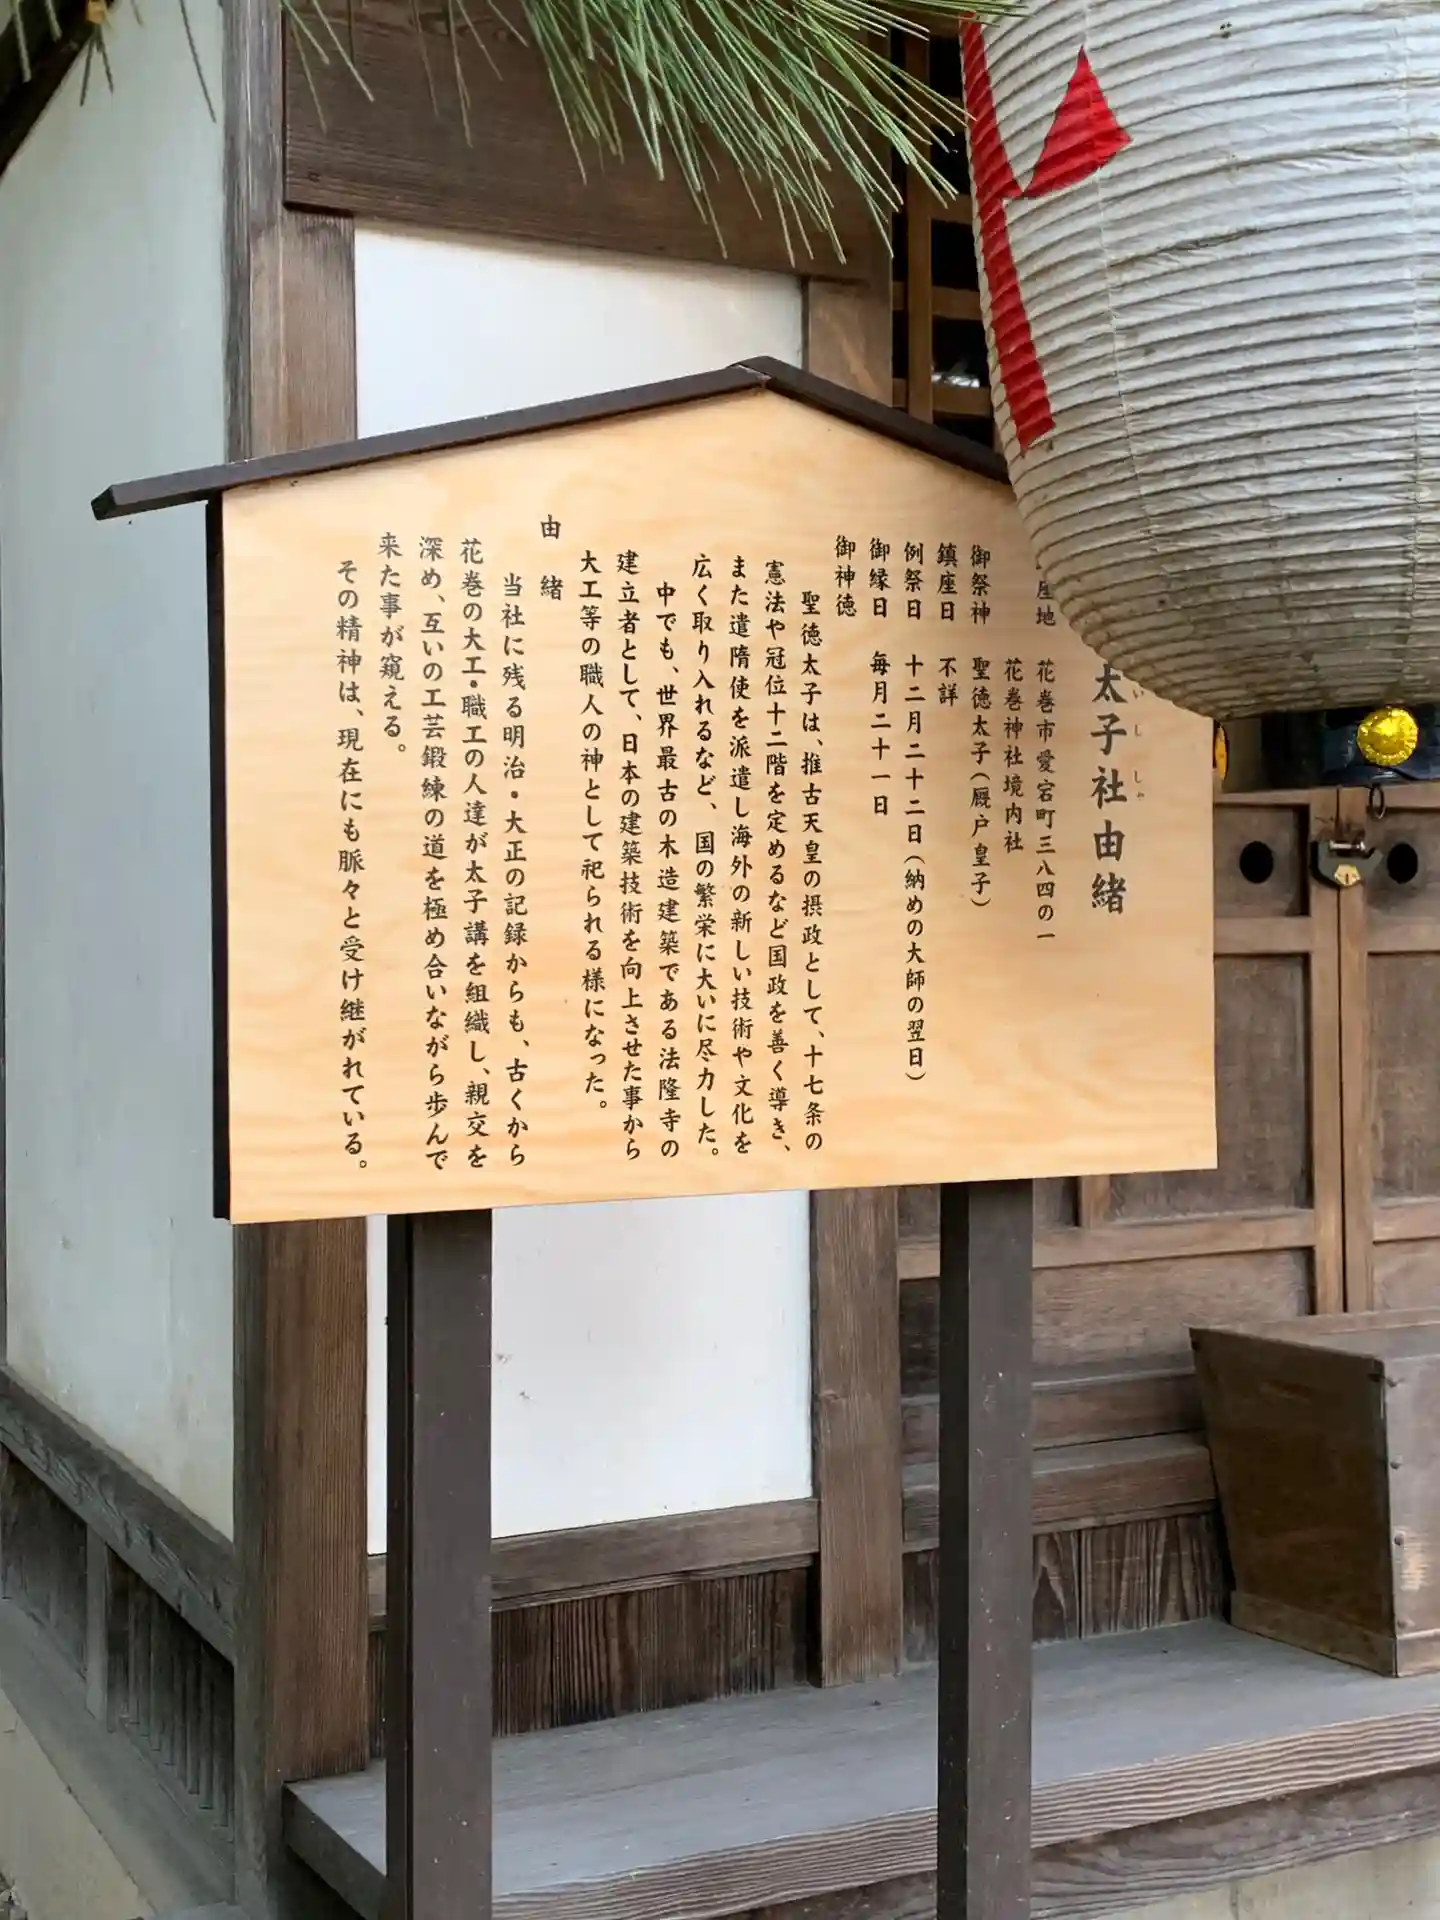 太子社由緒
いししゃ
座地 花巻市愛宕町三八四の一
花巻神社境内社
御祭神 聖徳太子(厩戸皇子)
鎮座日 不詳
例祭日 十二月二十二日(納めの大師の翌日)
御縁日 毎月二十一日
御神徳
聖徳太子は、推古天皇の摂政として、十七条の
憲法や冠位十二階を定めるなど国政を善く導き、
また遣隋使を派遣し海外の新しい技術や文化を
広く取り入れるなど、国の繁栄に大いに尽力した。
中でも、世界最古の木造建築である法隆寺の
建立者として、日本の建築技術を向上させた事から
大工等の職人の神として祀られる様になった。
由緒
当社に残る明治・大正の記録からも、古くから
花巻の大工・職工の人達が太子講を組織し、親交を
深め、互いの工芸鍛練の道を極め合いながら歩んで
来た事が窺える。
その精神は、現在にも脈々と受け継がれている。